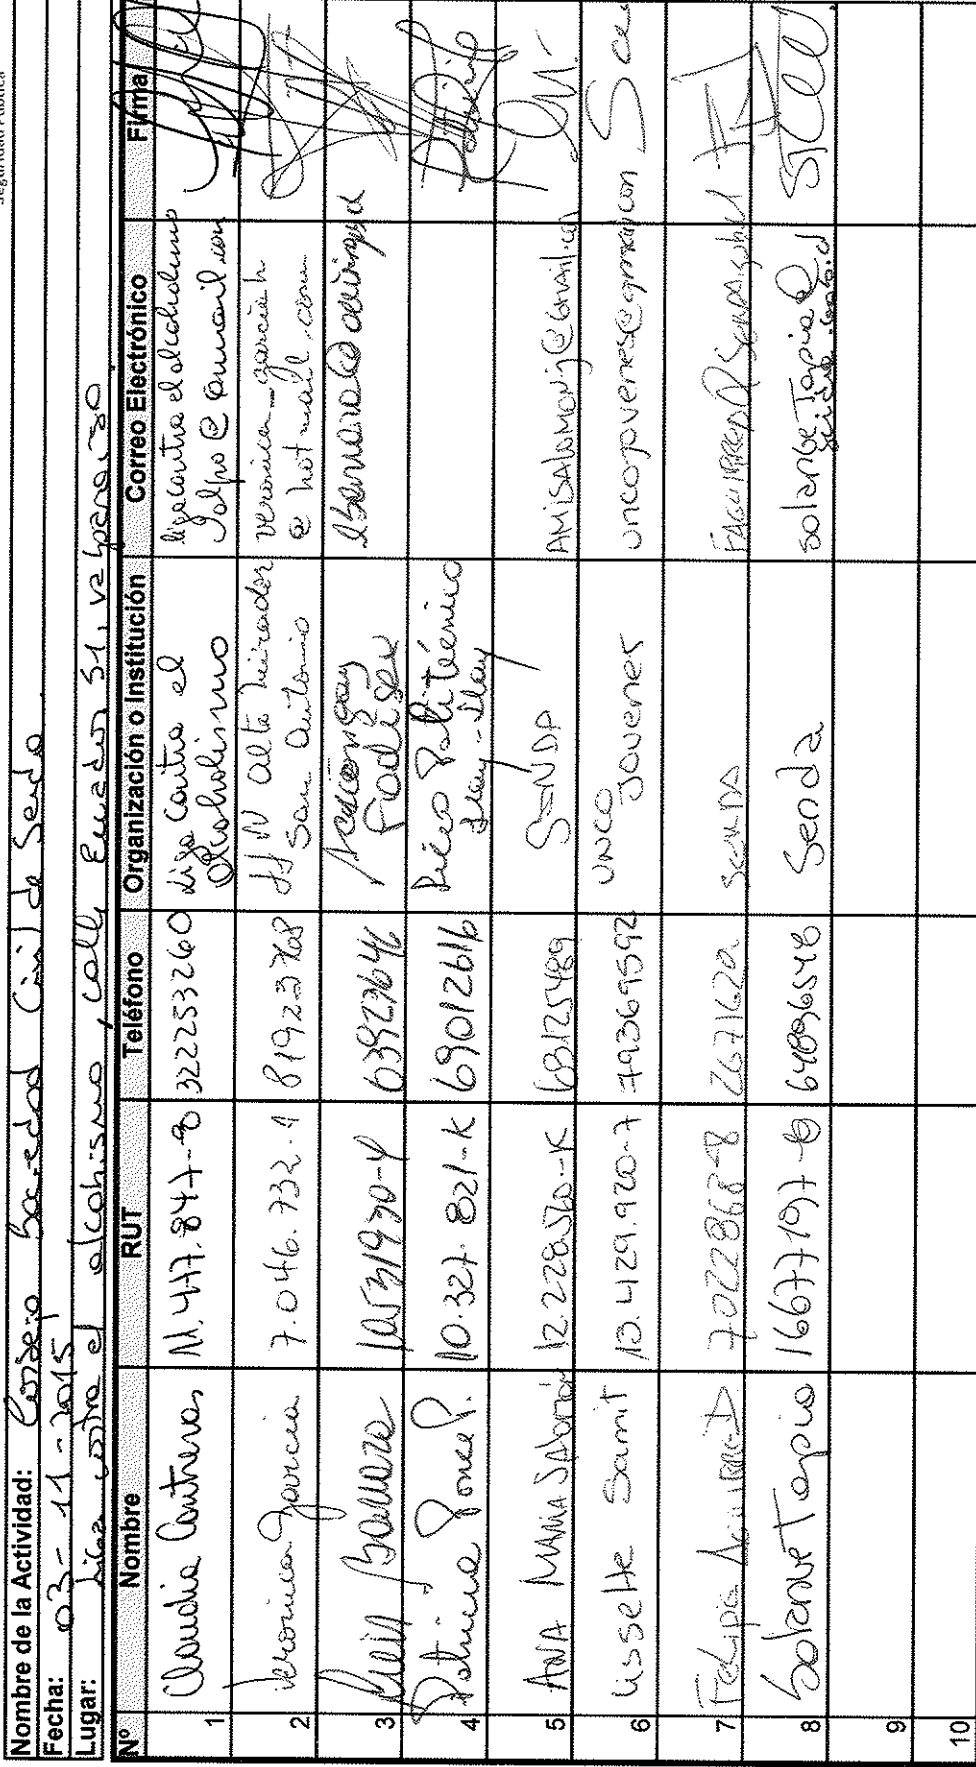 Seguridad Pública
Nombre de la Actividad: Consejo Sociedad Civil de Senda
Fecha: 03-11-2015
Lugar: Liga contra el alcoholismo, calle Ecuador 51, valparaiso
Nº Nombre RUT Teléfono Organización o Institución Correo Electrónico Firma
1 Claudia Contreras 11.417.847-8 322253260 Liga Contra el
Alcoholismo
ligacontraelalcoholismo
@ gmail.com
2 Veronica Garcia 7.046.732.1 81923768 JJ VV alto mirador
San Antonio
veronica-garcia-h
@ hotmail.com
3 63923646
4 Patricia Ponce P. 10.327.821-K 69012616 Liceo Politécnico
Llay-Llay
5 ANA MARIA SALOMÓN 12.228.570-K 68125489 SENDA
6 Lisselte Samit 13.429.920-7 79369592 UNCO
Jovenes
uncojovenes@gmail.com
7 Felipe Aguirre 7022868-8 2671620 SENDA
8 Solange Tapia 16677197-6 64896548 Senda solange.Tapia@
senda.gob.cl
9
10